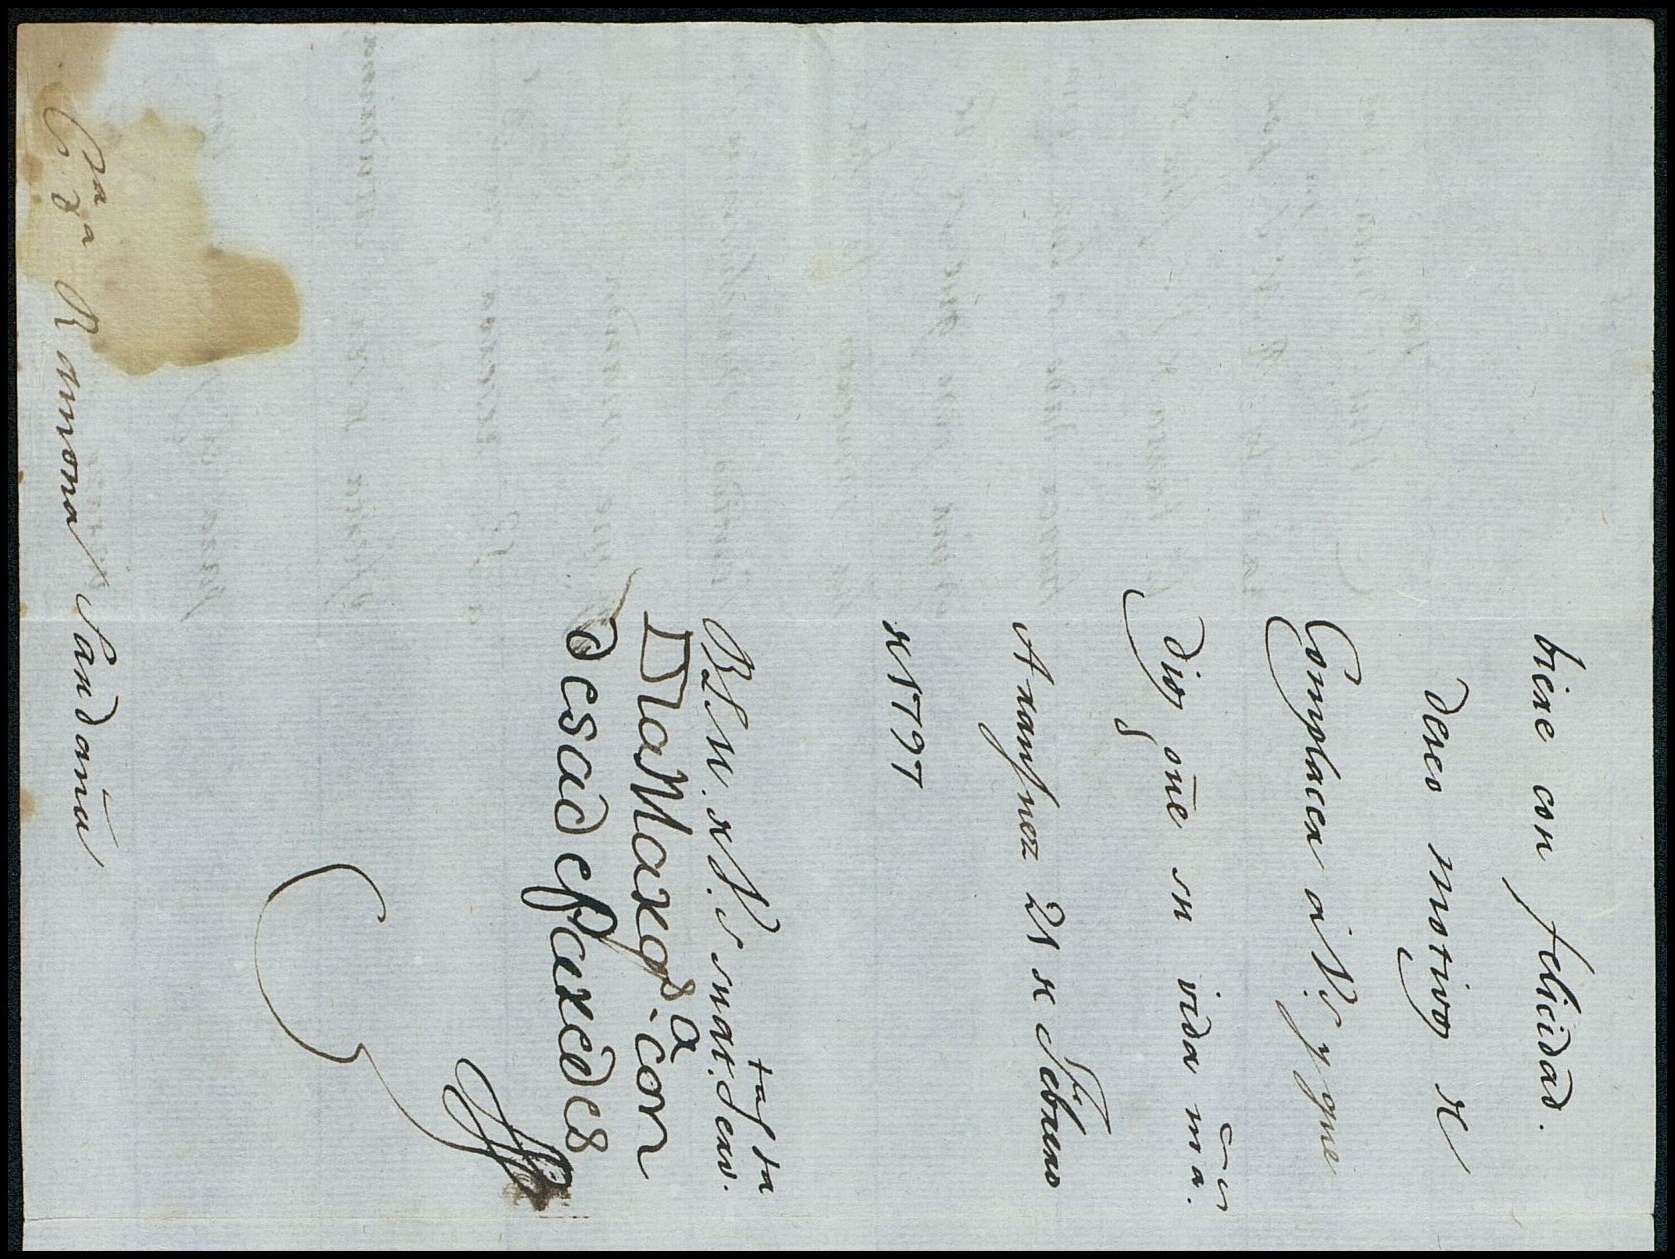 biere con felicidad.
Deseo motivos de
Complacer a V.S. y que
Dios gūe su vida m.s a.s
Aranjuez 21 de Febrero
de 1797
BLM. de V.S. su at.ta Serv.ta
La Marq.sa con
desa de Paredes
S.ra D.a Ramona Sandania